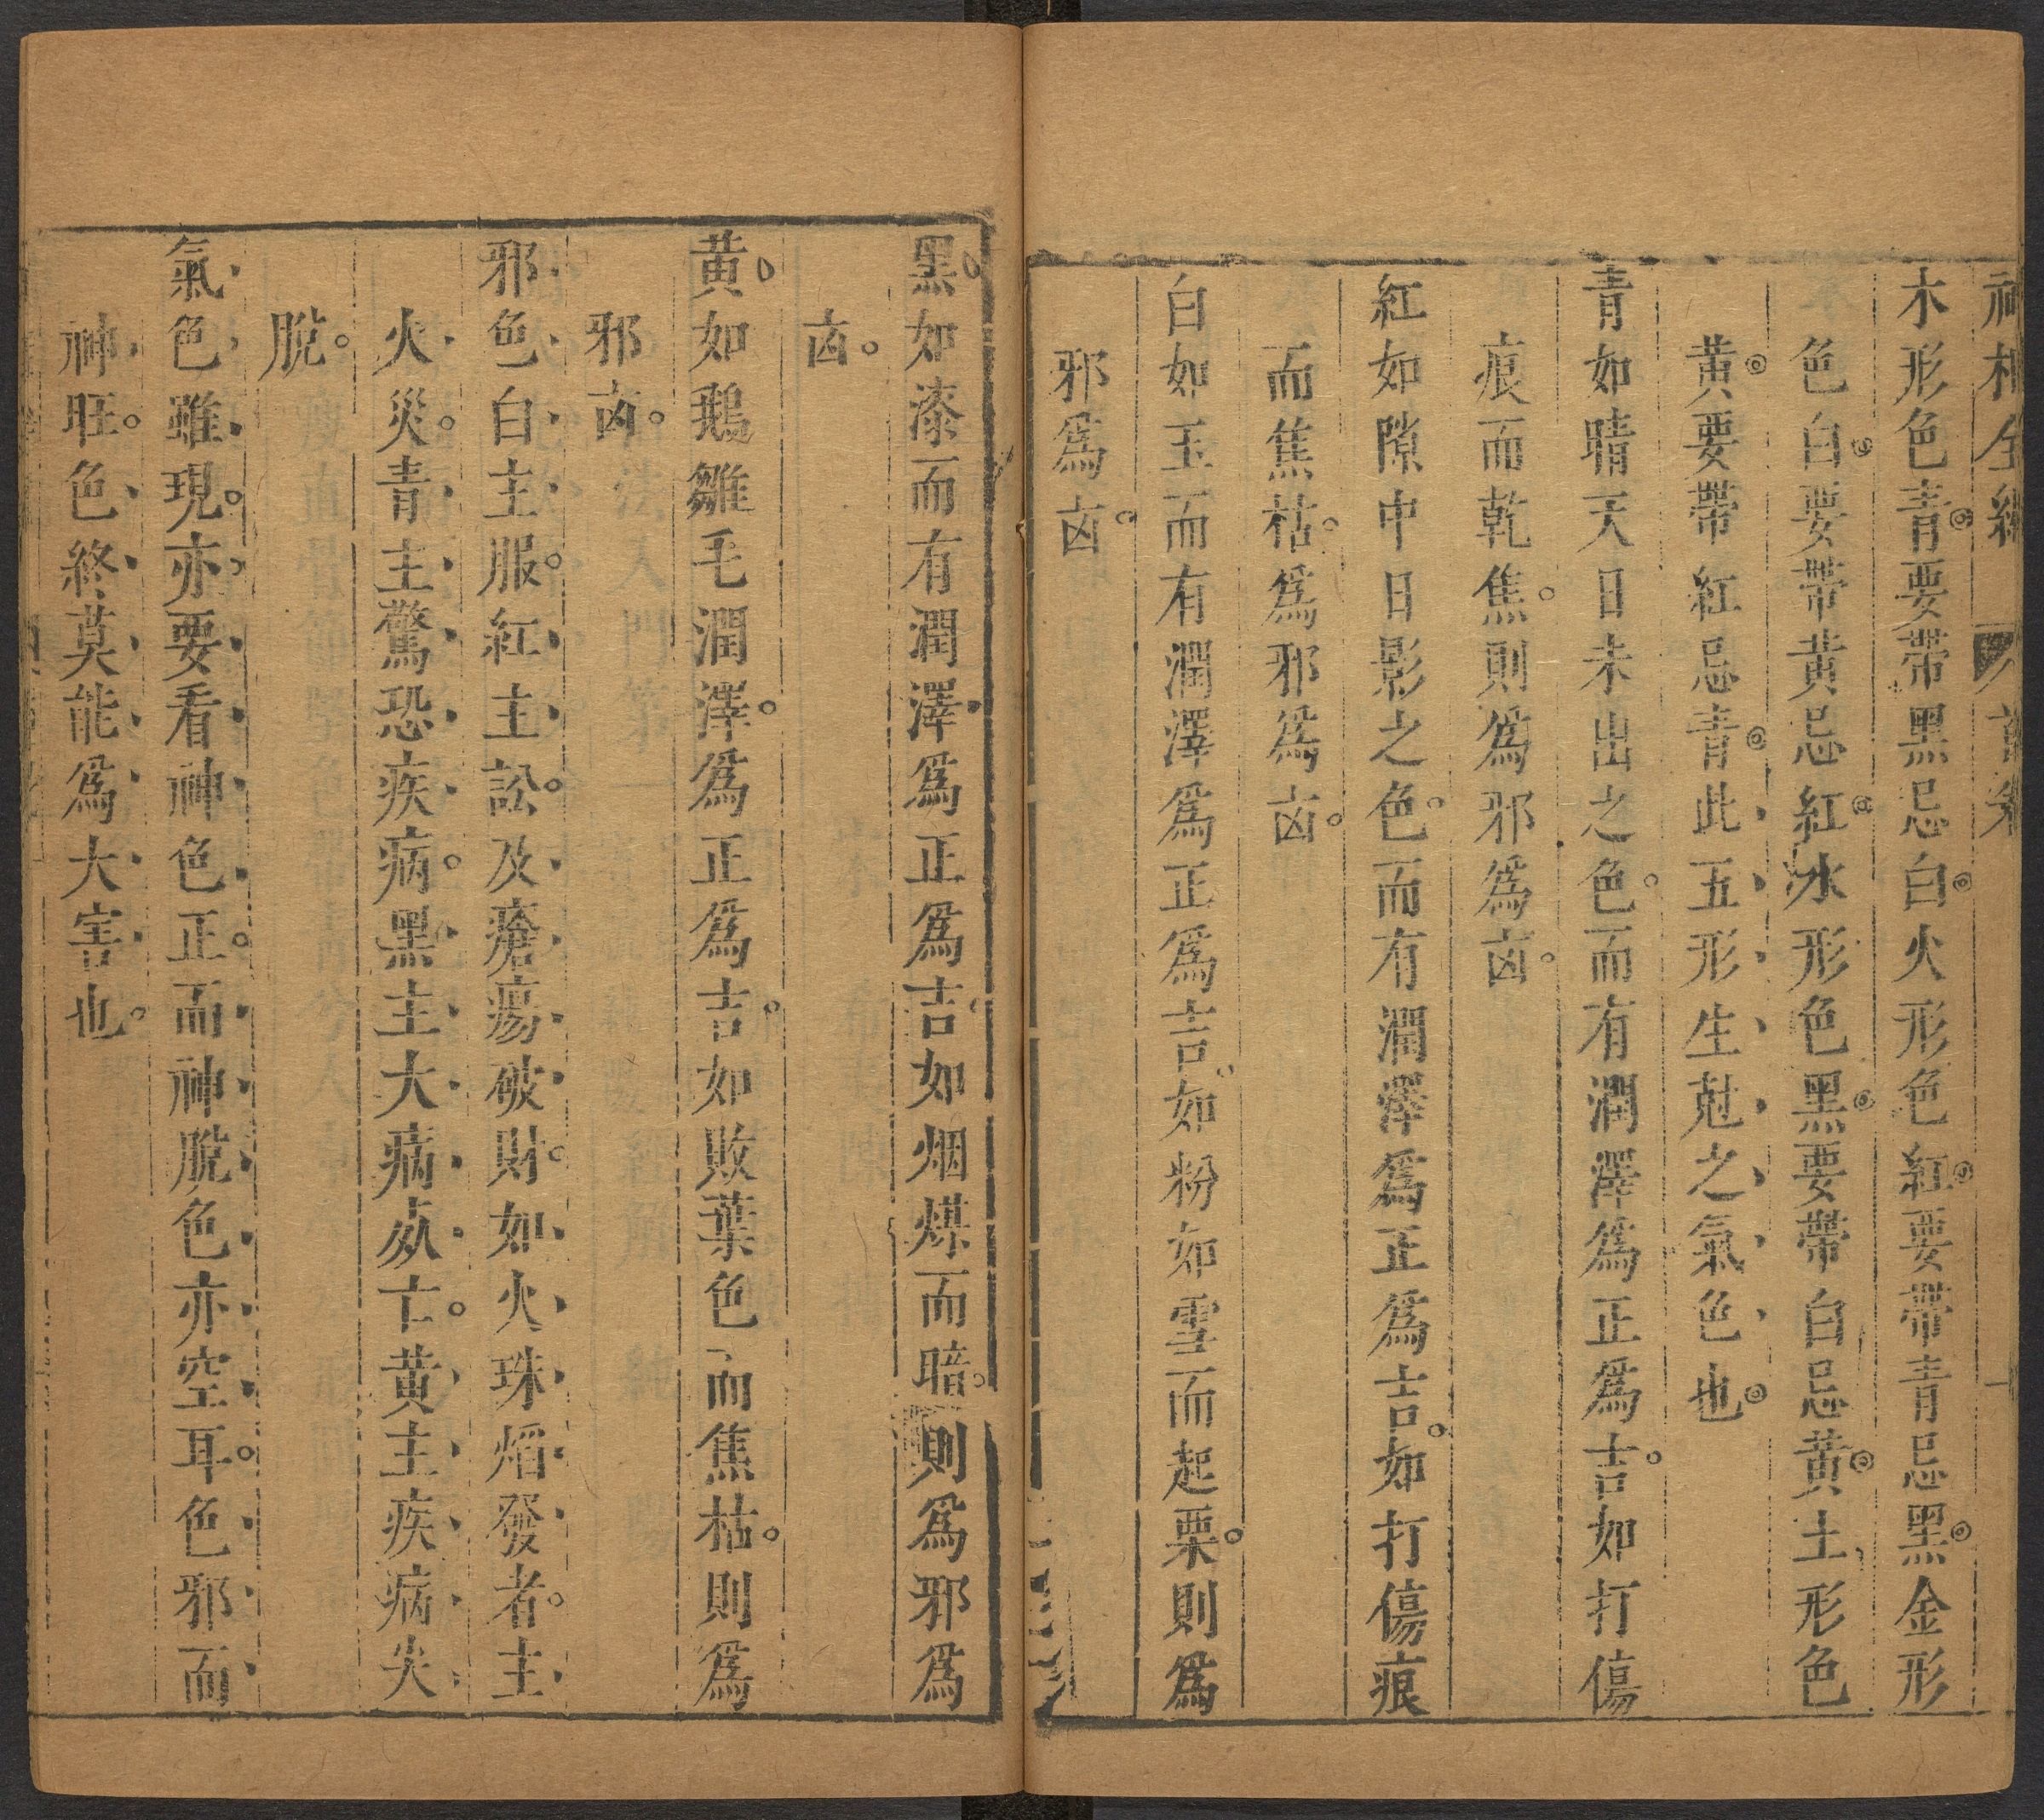 神相全編 首卷 一
木形色青要帶黑忌白火形色紅要帶青忌黑金形
色白要帶黃忌紅水形色黑要帶白忌黃土形色
黃要帶紅忌青此五形生尅之氣色也
青如晴天日未出之色而有潤澤為正為吉如打傷
痕而乾焦則為邪為凶
紅如隙中日影之色而有潤澤為正為吉如打傷痕
而焦枯為邪為凶
白如玉而有潤澤為正為吉如粉如雪而起栗則為
邪為凶
黑如漆而有潤澤為正為吉如烟煤而暗則為邪為
凶
黃如鵝雛毛潤澤為正為吉如敗葉色而焦枯則為
邪凶
邪色白主服紅主訟及瘡瘍破財如火珠熖發者主
火災青主驚恐疾病黑主大病死亡黃主疾病失
脫
氣色雖現亦要看神色正而神脫色亦空耳色邪而
神旺色終莫能為大害也